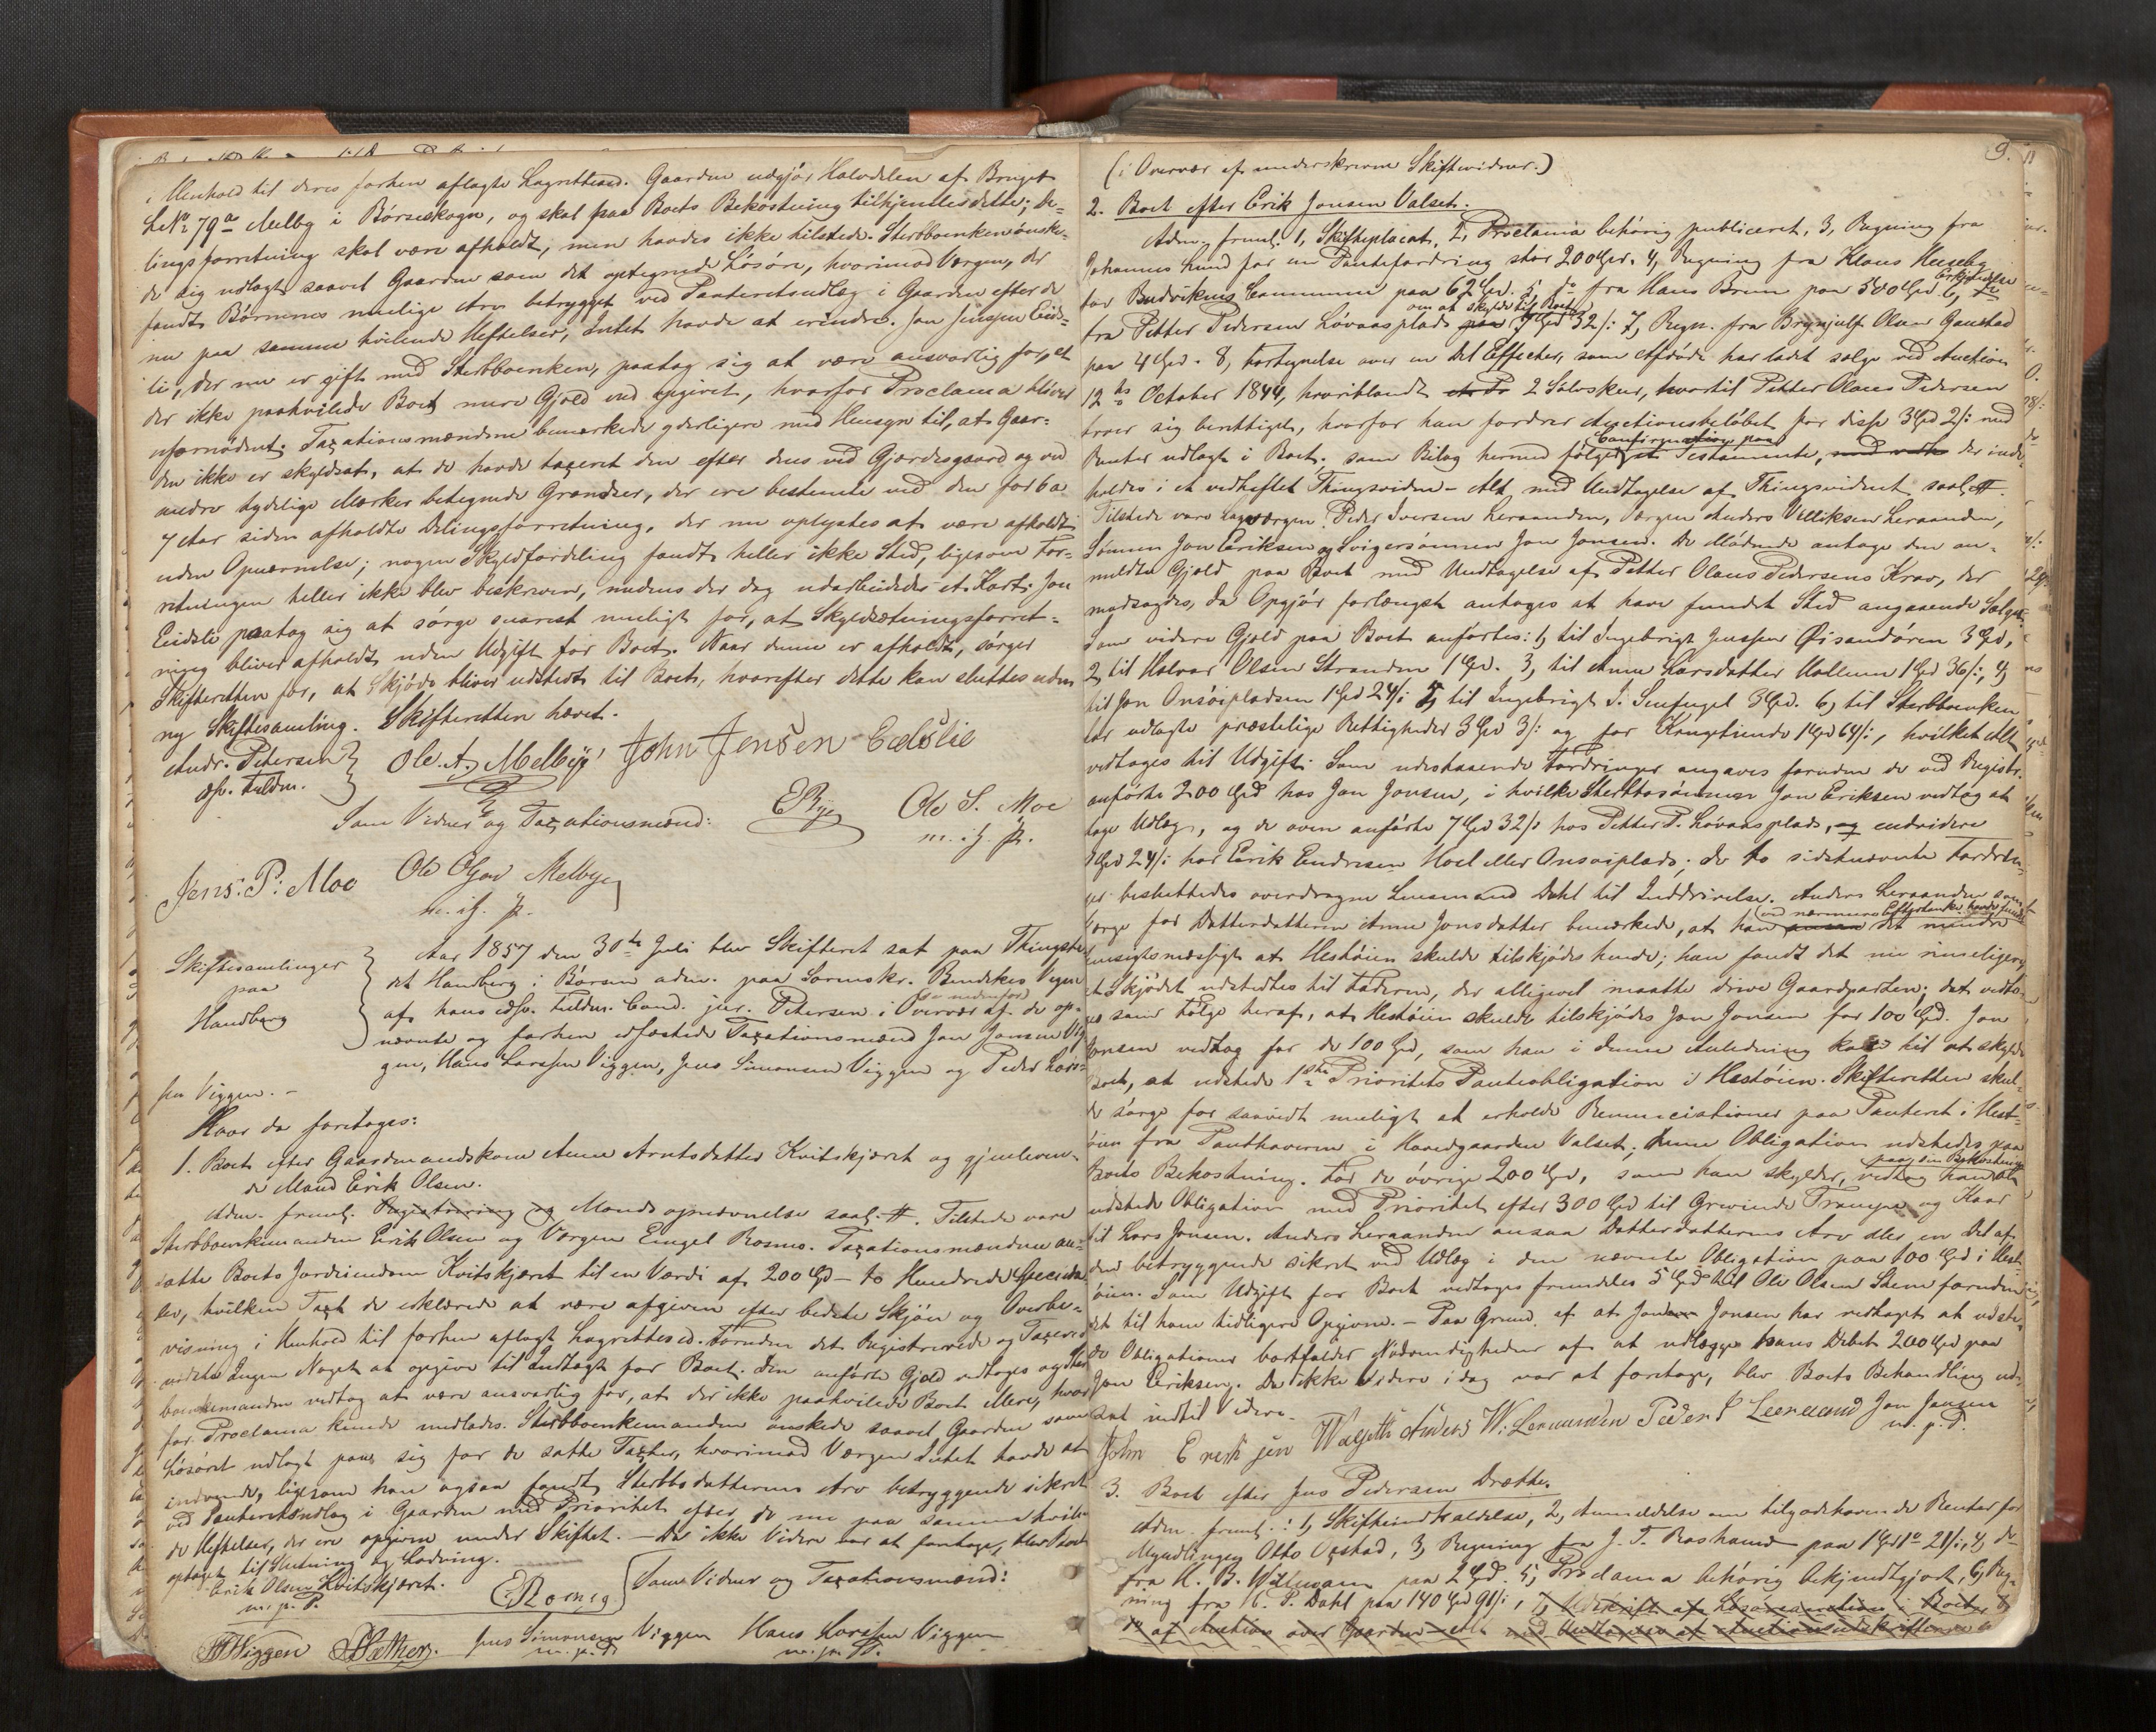 i Henhold til deres forhen aflagte Lagrettesed. Gaarden udgjør Halvdelen af Bruget
L No 79a Melby i Børseskogn, og skal paa Boets Bekostning tilkjendes dette; De-
lingsforretning skal være afholdt, men havdes ikke tilstede. Sterbboenken ønske-
de sig udlagt saavel Gaarden som det optegnede Løsøre, hvorimod Værgen, der
fandt Børnenes mulige Arv betrygget ved Panteretsudlæg i Gaarden efter de
nu paa samme hvilende Heftelser, Intet havde at erindre. Jon Jenssen Eids-
lie, der nu er gift med Sterbboenken, paatog sig at være ansvarlig for, at
der ikke paahvilede Boet mere Gjæld end opgivet, hvorfor Proclama bliver
ufornødent. Taxationsmændene bemærkede yderligere med Hensyn til, at Gaar-
den ikke er skyldsat, at de havde taxeret den efter dens ved Gjærdesgaard og ved
andre tydelige Mærker betegnede Grændser, der ere bestemte ved den for 6 a
7 Aar siden afholdte Delingsforretning, der nu oplystes at være afholdt
uden Opnævnelse; nogen Skyldfordeling fandt heller ikke Sted, ligesom For-
retningen heller ikke blev beskreven, medens der dog udarbeidedes et Kart. Jon
Eidslie paatog sig at sørge snarest muligt for, at Skyldsætningsforret-
ning bliver afholdt uden Udgift for Boet. Naar denne er afholdt, sørger
Skifteretten for, at Skjøde bliver udstedt til Boet, hvorefter dette kan sluttes uden
ny Skiftesamling. Skifteretten hævet.
Andr. Petersen
edsv. Fuldm.
Ole. A. Melbye John Jensen Eidslie
Som Vidner og Taxationsmænd:
E Bye Ole S. Moe
m. i. P.
Jens: P: Moe Ole Olsen Melbye
m. i. P.
Skiftesamlinger
paa
Handberg
Aar 1857 den 30te Juli blev Skifteret sat paa Thingste-
det Handberg i Børsen adm. paa Sorenskr. Bendekes Vegne
af hans edsv. Fuldm. Cand. jur. Petersen i Overvær af de op-
(se nedenfor)
nævnte og forhen edfæstede Taxationsmænd Jon Jonsen Vig-
gen, Hans Larssen Viggen, Jens Simonsen Viggen og Peder Lars-
sen Viggen. -
Hvor da foretoges:
1. Boet efter Gaardmandskone Anne Arntsdatter Kvitskjæret og gjenleven-
de Mand Erik Olsen.
Adm. fremlg. Registrering og Mands opnævnelse saal. #. Tilstede vare
Sterbboenkemanden Erik Olsen og Værgen Eingel Rosmo. Taxationsmændene an-
satte Boets Jordeiendom Kvitskjæret til en Værdi af 200 Spd - to Hundrede Specida-
ler, hvilken Taxt de erklærede at være afgiven efter bedste Skjøn og Overbe-
visning i Henhold til forhen aflagt Lagrettesed. Foruden det Registrerede og Taxerede
vidste Ingen Noget at opgive til Indtægt for Boet. Den anførte Gjæld vedtoges og Sterb-
boenkemanden vedtog at være ansvarlig for, at der ikke paahvilede Boet Mere, hvor-
for Proclama kunde undlades. Sterbboenkemanden ønskede saavel Gaarden som
Løsøret udlagt paa sig for de satte Taxter, hvorimod Værgen Intet havde at
indvende, ligesom han ogsaa fandt Sterbbodatterens Arv betryggende sikret
ved Panteretsudlæg i Gaarden med Prioritet efter de nu paa samme hvilen-
de Heftelser, der ere opgivne under Skiftet. - Da ikke Videre var at foretage, blev Boet
optaget til Slutning og Lodning.
Erik Olsen Kvitskjæret.
m. p. P.
E Rosmo
Som Vidner og Taxationsmænd:
Viggen Sæther. Jens Simonsen Viggen Hans Larssen Viggen
m. p. P. m. p. P.
9.
(i Overvær af underskrevne Skiftevidner.)
2. Boet efter Erik Jonsen Valset.
Adm. fremlg. 1, Skifteplacat, 2, Proclama behørig publiceret, 3, Regning fra
Johannes Lund for en Pantefordring stor 200 Spd. 4, Regning fra Klaus Huseby
for Budvikens Commune paa 62 Spd. 5, do fra Hans Brun paa 500 Spd 6, Erkjendelse
fra Petter Pedersen Løvaasplads om at skylde til Boet 7 Spd 32 /: 7, Regn. fra Brynjulf Olsen Gaustad
paa 4 Spd. 8, Fortegnelse over en Del Effecter, som Afdøde har ladet sælge ved Auction
12te October 1844, hvoriblandt 2 Sølvskeer, hvortil Petter Olaus Pedersen
troer sig berettiget, hvorfor han fordrer Auctionsbeløbet for disse 3 Spd 2 /: med
Renter udlagt i Boet. Som Bilag hermed følger Confirmation paa et Testamente, der inde-
holdes i et vedheftet Thingsvidne - Alt med Undtagelse af Thingsvidnet saal. #.
Tilstede vare Lagværgen Peder Iversen Leraanden, Værgen Anders Villiksen Leraanden,
Sønnen Jon Eriksen og Svigersønnen Jon Jonsen. De Mødende antage den an-
meldte Gjæld paa Boet med Undtagelse af Petter Olaus Pedersens Krav, der
modsagdes, da Opgjør forlængst antages at have fundet Sted angaaende Salget.
Som videre Gjæld paa Boet anførtes: 1, til Ingebrigt Jenssen Øisandøren 3 Spd,
2, til Halvor Olsen Stranden 1 Spd. 3, til Anne Larsdatter Hollum 1 Spd 36 /:, 4,
til Jon Onsøipladsen 1 Spd 24 /: 5, til Ingebrigt J. Snefugel 3 Spd. 6, til Sterbboenken
for udlagte præstelige Rettigheder 3 Spd 3 /: og for Kongetiende 1 Spd 64 /:, hvilket Alt
vedtages til Udgift. Som udestaaende Fordringer angaves foruden de ved Registr.
anførte 200 Spd hos Jon Jonsen, i hvilke Sterbbosønnen Jon Eriksen vedtog at
tage Udlæg, og de oven anførte 7 Spd 32 /: hos Petter P. Løvaasplads, og endvidere
Spd 24 /: hos Erik Endresen Hoel eller Onsøiplads; de to sidstnævnte Fordrin-
ger besluttedes overdragne Lensmand Dahl til Inddrivelse. Anders Leraanden som
Værge for Datterdatteren Anne Jonsdatter bemærkede, at han ved nærmere Eftertanke havde fundet det mindre
hensigtsmæssigt at Hestøien skulde tilskjødes hende; han fandt det nu rimeligere
at Skjødet udstedtes til Faderen, der alligevel maatte drive Gaardparten; det vedto-
ges som Følge heraf, at Hestøien skulde tilskjødes Jon Jonsen for 100 Spd. Jon
Jonsen vedtog for de 100 Spd, som han i denne Anledning kom til at skylde
Boet, at udstede 1ste Prioritets Panteobligation i Hestøien. Skifteretten skul-
de sørge for saavidt muligt at erholde Renunciationer paa Panteret i Hest-
øien fra Panthaverne i Hovedgaarden Valset. Denne Obligation udstedes paa
Boets Bekostning. For de øvrige 200 Spd, som han skylder, vedtog han paa sin Bekostning at
udstede Obligation med Prioritet efter 300 Spd til Grevinde Trampe og Kaar
til Lars Jonsen. Anders Leraanden ansaa Datterdatterens Arv eller en Del af
den betryggende sikret ved Udlæg i den nævnte Obligation paa 100 Spd i Hest-
øien. Som Udgift for Boet vedtoges fremdeles 5 Spd til Ole Olsen Skem foruden
det til ham tidligere Opgivne. - Paa Grund af at Jon Jonsen har vedtaget at udste-
de Obligationer bortfalder Nødvendigheden af at udlægge hans Debet 200 Spd paa
Jon Eriksen. Da ikke Videre i dag var at foretage, blev Boets Behandling ud-
sat indtil Videre.
John Erich sen Walseth Anders W: Leraanden Peder I Leeraand Jon Jonsen
m. p. P.
3. Boet efter Jens Pedersen Drætte.
Adm. fremlg.: 1, Skifteindkaldelse, 2, Anmeldelse om tilgodehavende Renter for
Myndlingen Otto Opstad, 3, Regning fra J. T. Roshaand paa 1 Spd 1 21 /:, 4, do
fra H. B. paa 2 Spd. 5, Proclama behørig bekjendtgjort, 6, Reg-
ning fra C. P. Dahl paa 140 Spd 91 /:, 7, Udskrift af Løsøreauction i Boet, 8,
do af Auction over Gaarden - Alt med Undtagelse af Auctionsudskrifterne